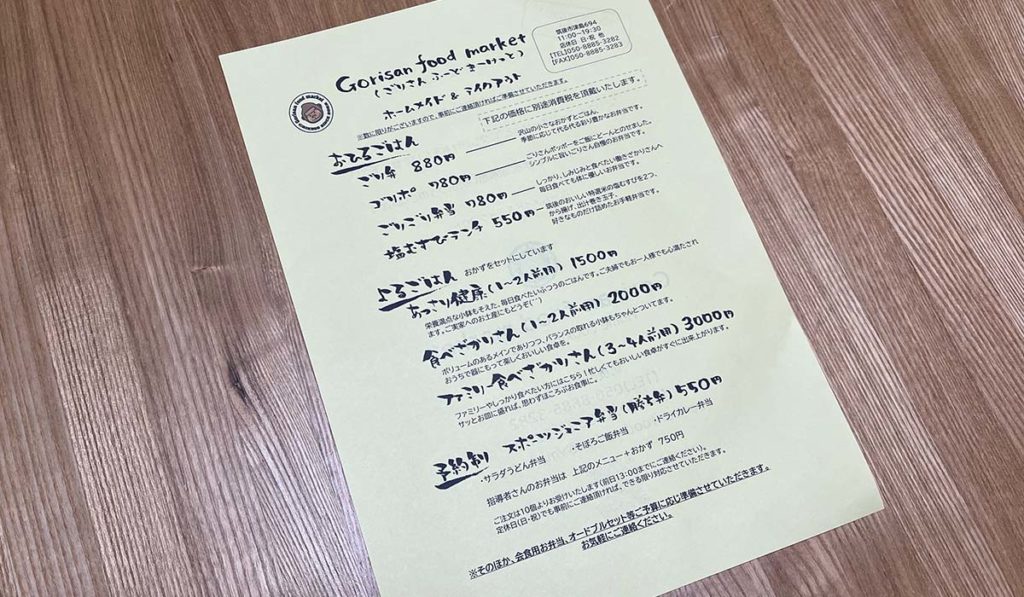 Gorisan food market
(ごりさん ふーど まーけっと)
ホームメイド & テイクアウト
筑後市津島694
11:00~19:30
店休日 日・祝 他
[TEL]050-8885-3282
[FAX]050-8885-3283
※数に限りがございますので、事前にご連絡頂ければご準備させていただきます。
下記の価格に別途消費税を頂戴いたします。
おひるごはん
ごり弁 880円
沢山の小さなおかずとごはん。
季節に応じて代る代る彩り豊かなお弁当です。
ゴリポ 780円
ごりさんポッポーをご飯にどーんとのせました。
シンプルに旨いごりさん自慢のお弁当です。
ごりごり弁当 780円
しっかり、しみじみと食べたい働きざかりさんへ
毎日食べても体に優しいお弁当です。
塩むすびランチ 550円
筑後のおいしい特選米の塩むすびを2つ、
から揚げ、出汁巻き玉子、
好きなものだけ詰めたお手軽弁当です。
よるごはん おかずをセットにしています
あっさり健康(1~2人前用) 1500円
栄養満点な小鉢もそえた、毎日食べたいふつうのごはんです。ご夫婦でもお一人様でも心満たされ
ます。ご実家へのお土産にもどうぞ(^^)
食べざかりさん(1~2人前用) 2000円
ボリュームのあるメインでありつつ、バランスの取れる小鉢もちゃんとついてます。
おうちで器にもって楽しくおいしい食卓を。
ファミリー食べざかりさん(3~4人前用) 3000円
ファミリーやしっかり食べたい方にはこちら!忙しくてもおいしい食卓がすぐに出来上がります。
サッとお皿に盛れば、思わずほころぶお食事に。
予約制
スポーツジュニア弁当(勝ち弁) 550円
・サラダうどん弁当 ・そぼろご飯弁当 ・ドライカレー弁当
指導者さんのお弁当は 上記のメニュー+おかず 750円
ご注文は10個よりお受けいたします(前日13:00までにご連絡ください)。
定休日(日・祝)でも事前にご連絡頂ければ、できる限り対応させていただきます。
※そのほか、会食用お弁当、オードブルセット等ご予算に応じ準備させていただきます。
お気軽にご連絡ください。